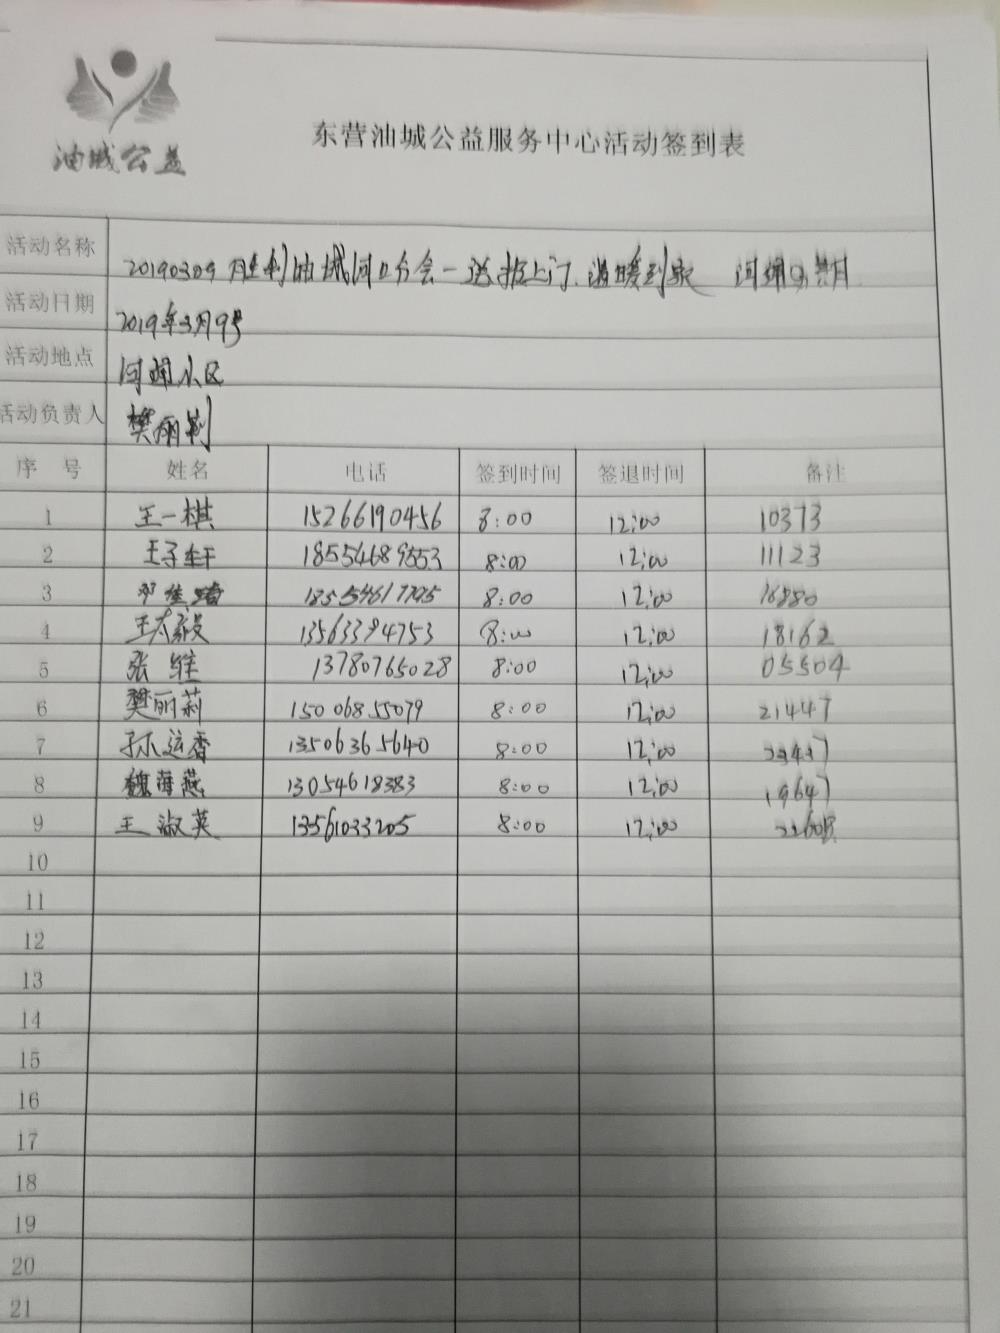 油城公益
东营油城公益服务中心活动签到表
活动名称 20190309 胜利油城河口分会一送报上门.温暖到家
活动日期 2019年3月9号
活动地点 河 小区
活动负责人 樊丽莉
序 号 姓名 电话 签到时间 签退时间 备注
1 王一棋 15266190456 8:00 12:00 10373
2 王子轩 18554689553 8:00 12:00 11123
3 8:00 12:00 16880
4 王太毅 13563394753 8:00 12:00 18162
5 张维 13780765028 8:00 12:00 05504
6 樊丽莉 15006855079 8:00 12:00 21447
7 孙运香 13506365640 8:00 12:00
8 魏海燕 13054618383 8:00 12:00 19647
9 王淑英 13561033205 8:00 12:00
10
11
12
13
14
15
16
17
18
19
20
21